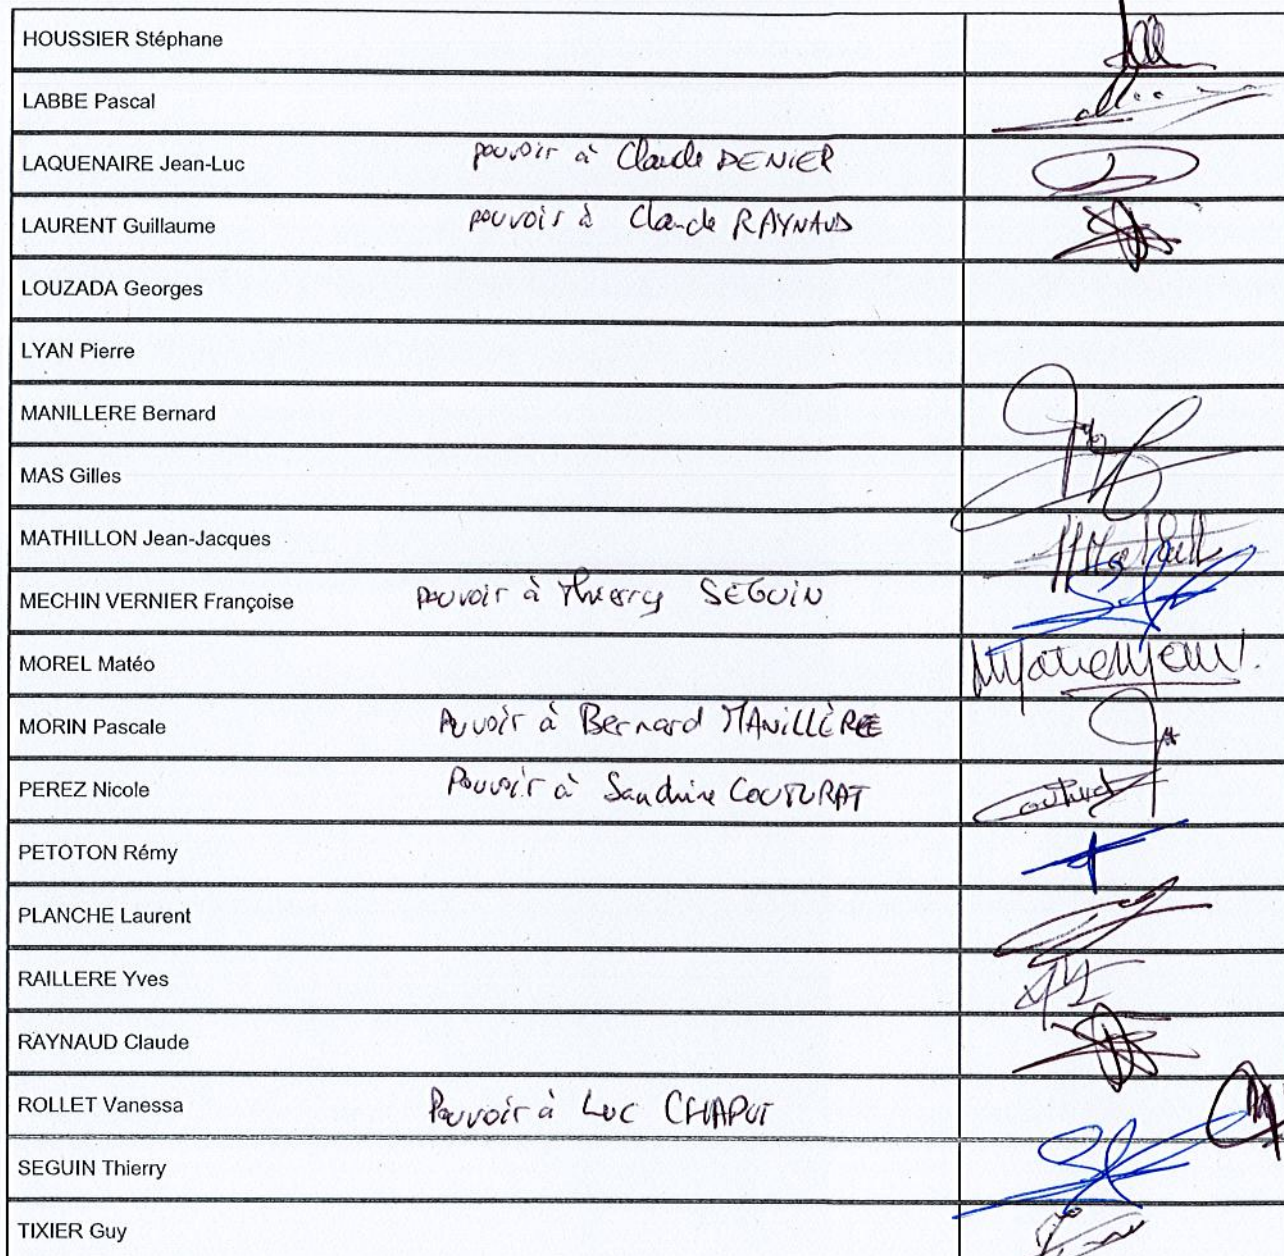 HOUSSIER Stéphane
LABBE Pascal
LAQUENAIRE Jean-Luc pouvoir à Claude DENIER
LAURENT Guillaume pouvoir à Claude RAYNAUD
LOUZADA Georges
LYAN Pierre
MANILLERE Bernard
MAS Gilles
MATHILLON Jean-Jacques
MECHIN VERNIER Françoise pouvoir à Thierry SEGUIN
MOREL Matéo
MORIN Pascale Pouvoir à Bernard MANILLÈRE
PEREZ Nicole Pouvoir à Sandrine COUTURAT
PETOTON Rémy
PLANCHE Laurent
RAILLERE Yves
RAYNAUD Claude
ROLLET Vanessa Pouvoir à Luc CHAPUT
SEGUIN Thierry
TIXIER Guy